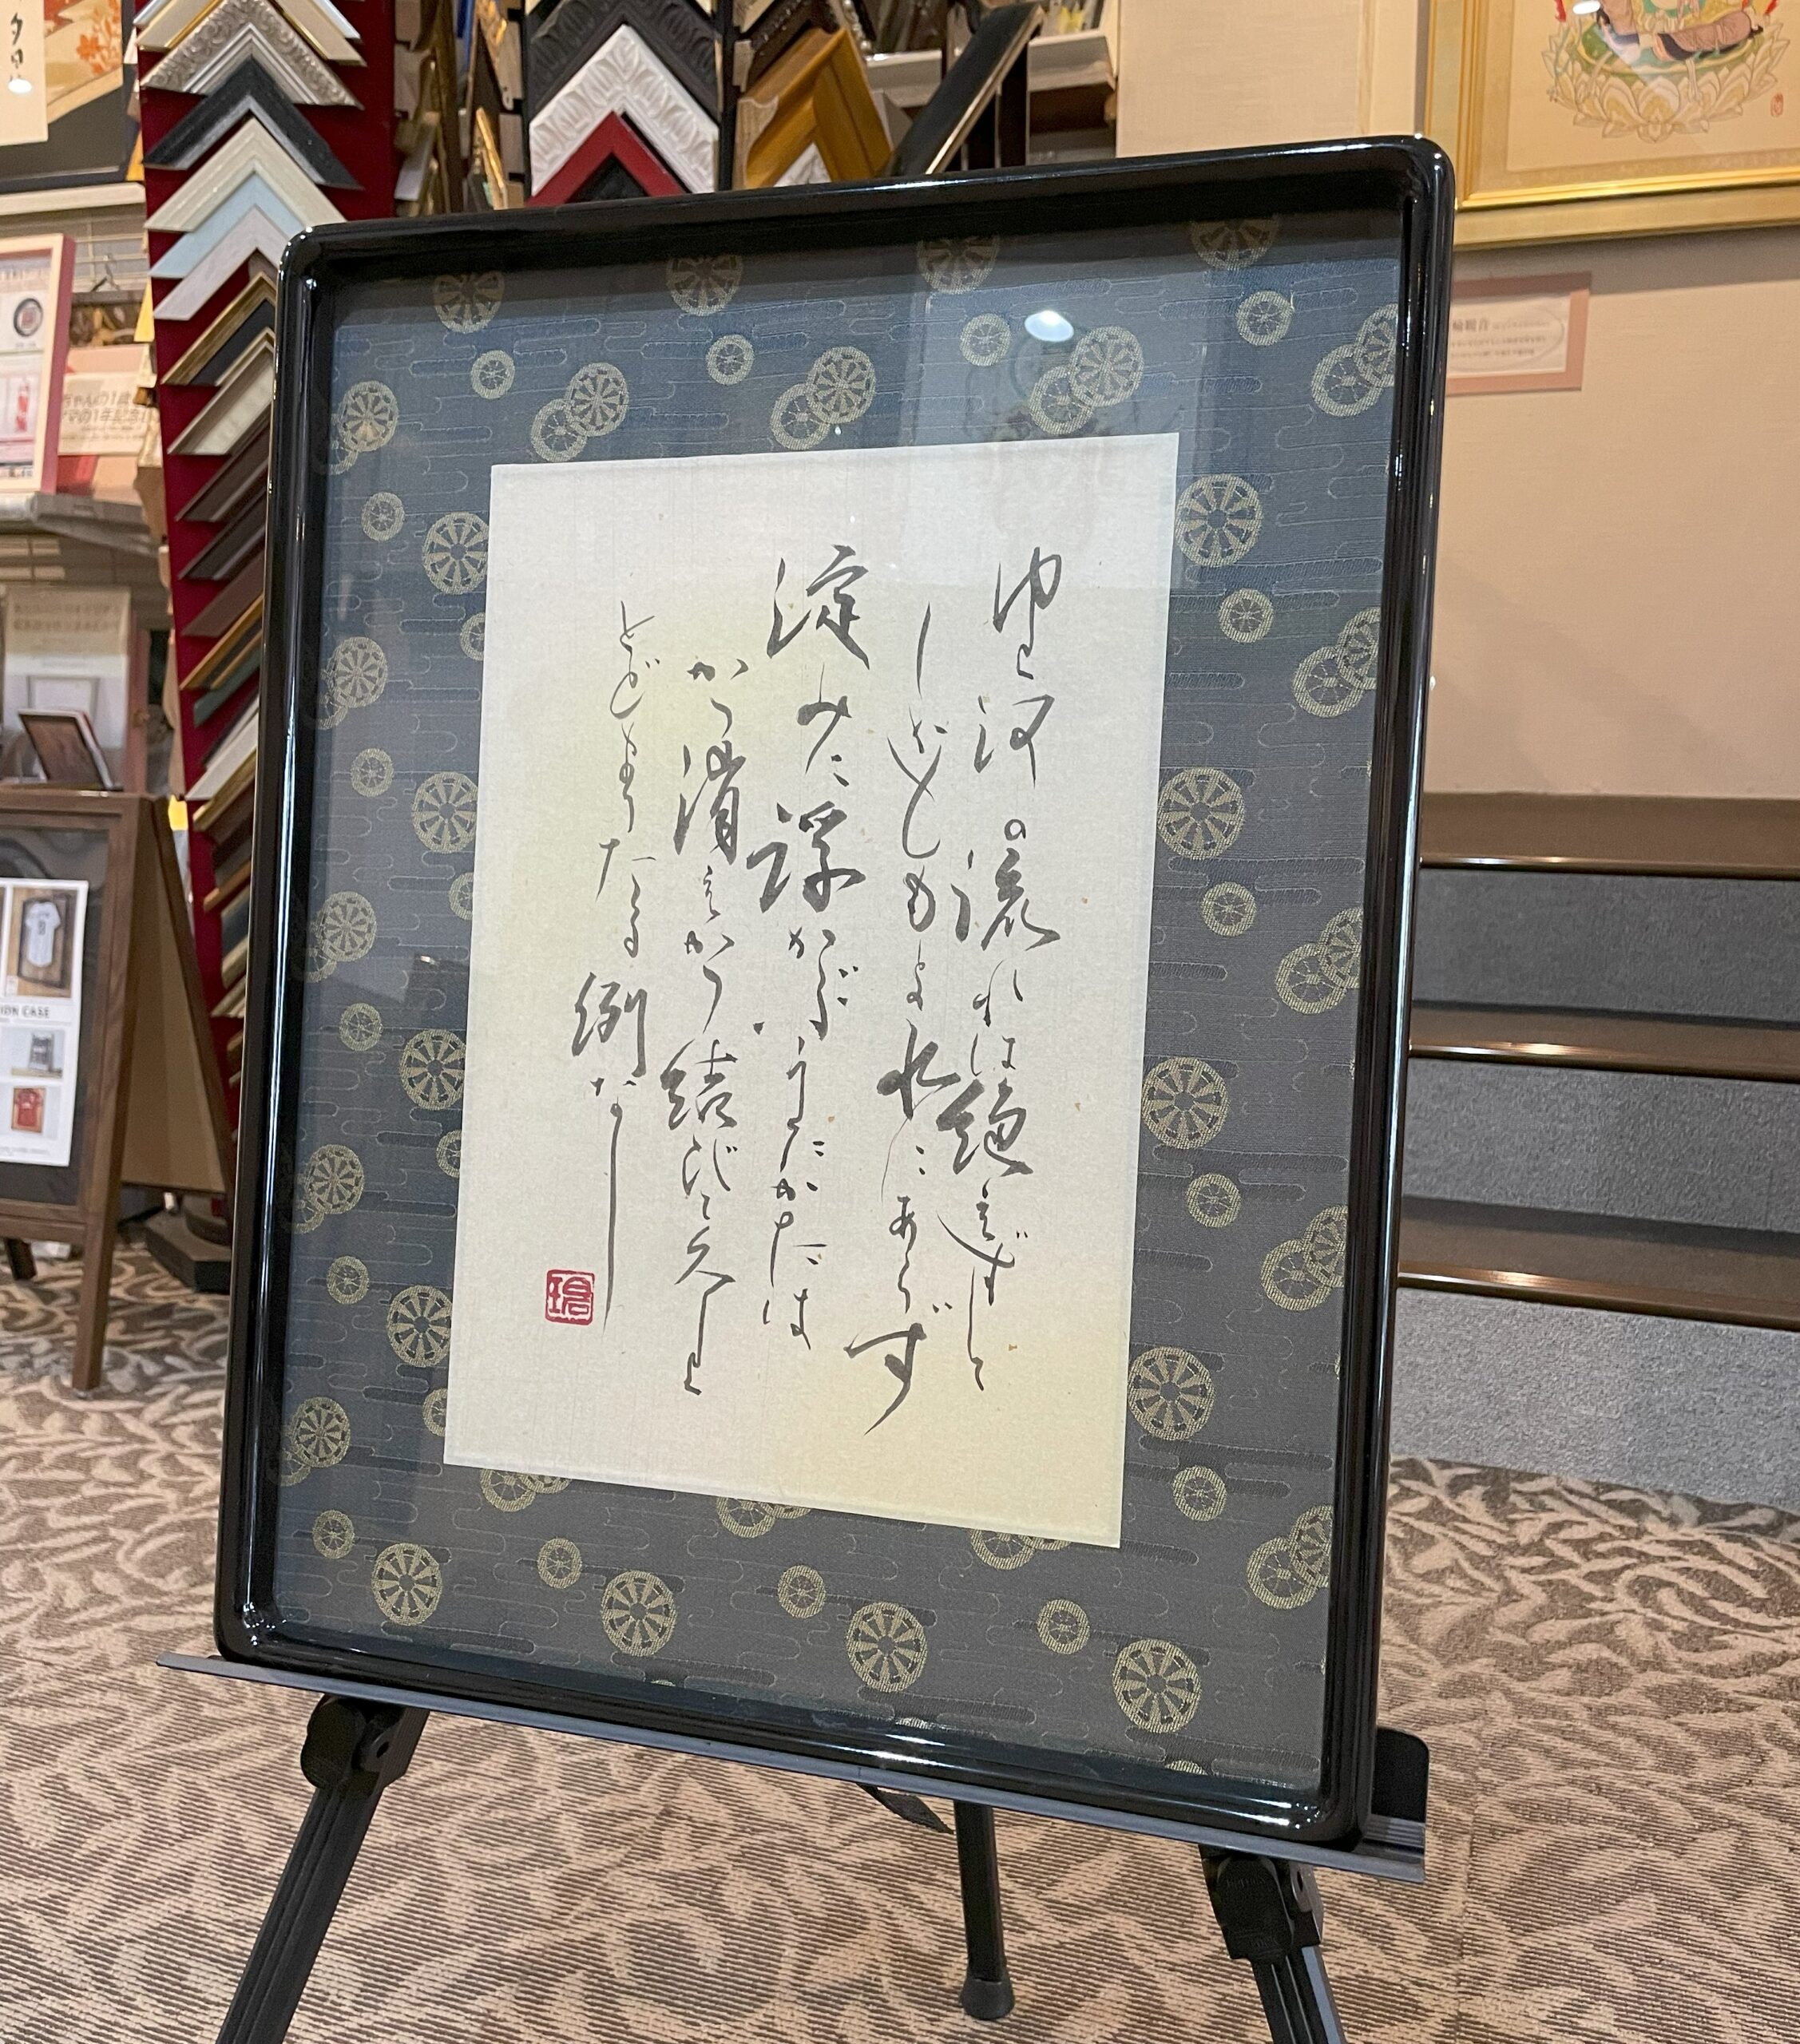 ゆく河の流れは絶えずして
しかももとの水にあらず
淀みに浮かぶうたかたは
かつ消えかつ結びて久しく
とどまりたる例なし
ION CASE
輪観音